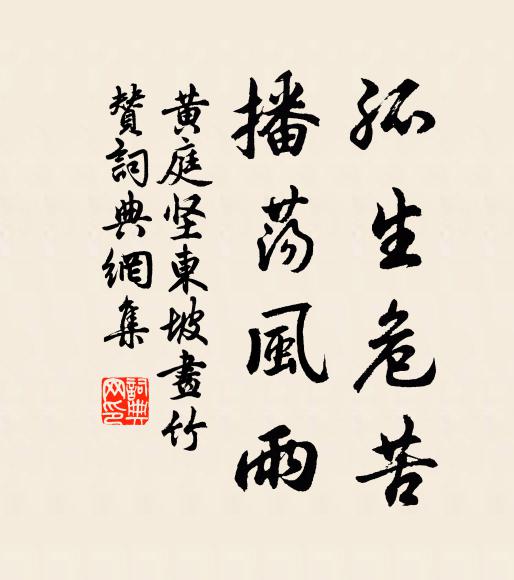 孤生危苦
播荡風雨
黄庭坚東坡畫竹
贊詞典網集
詞典
网印